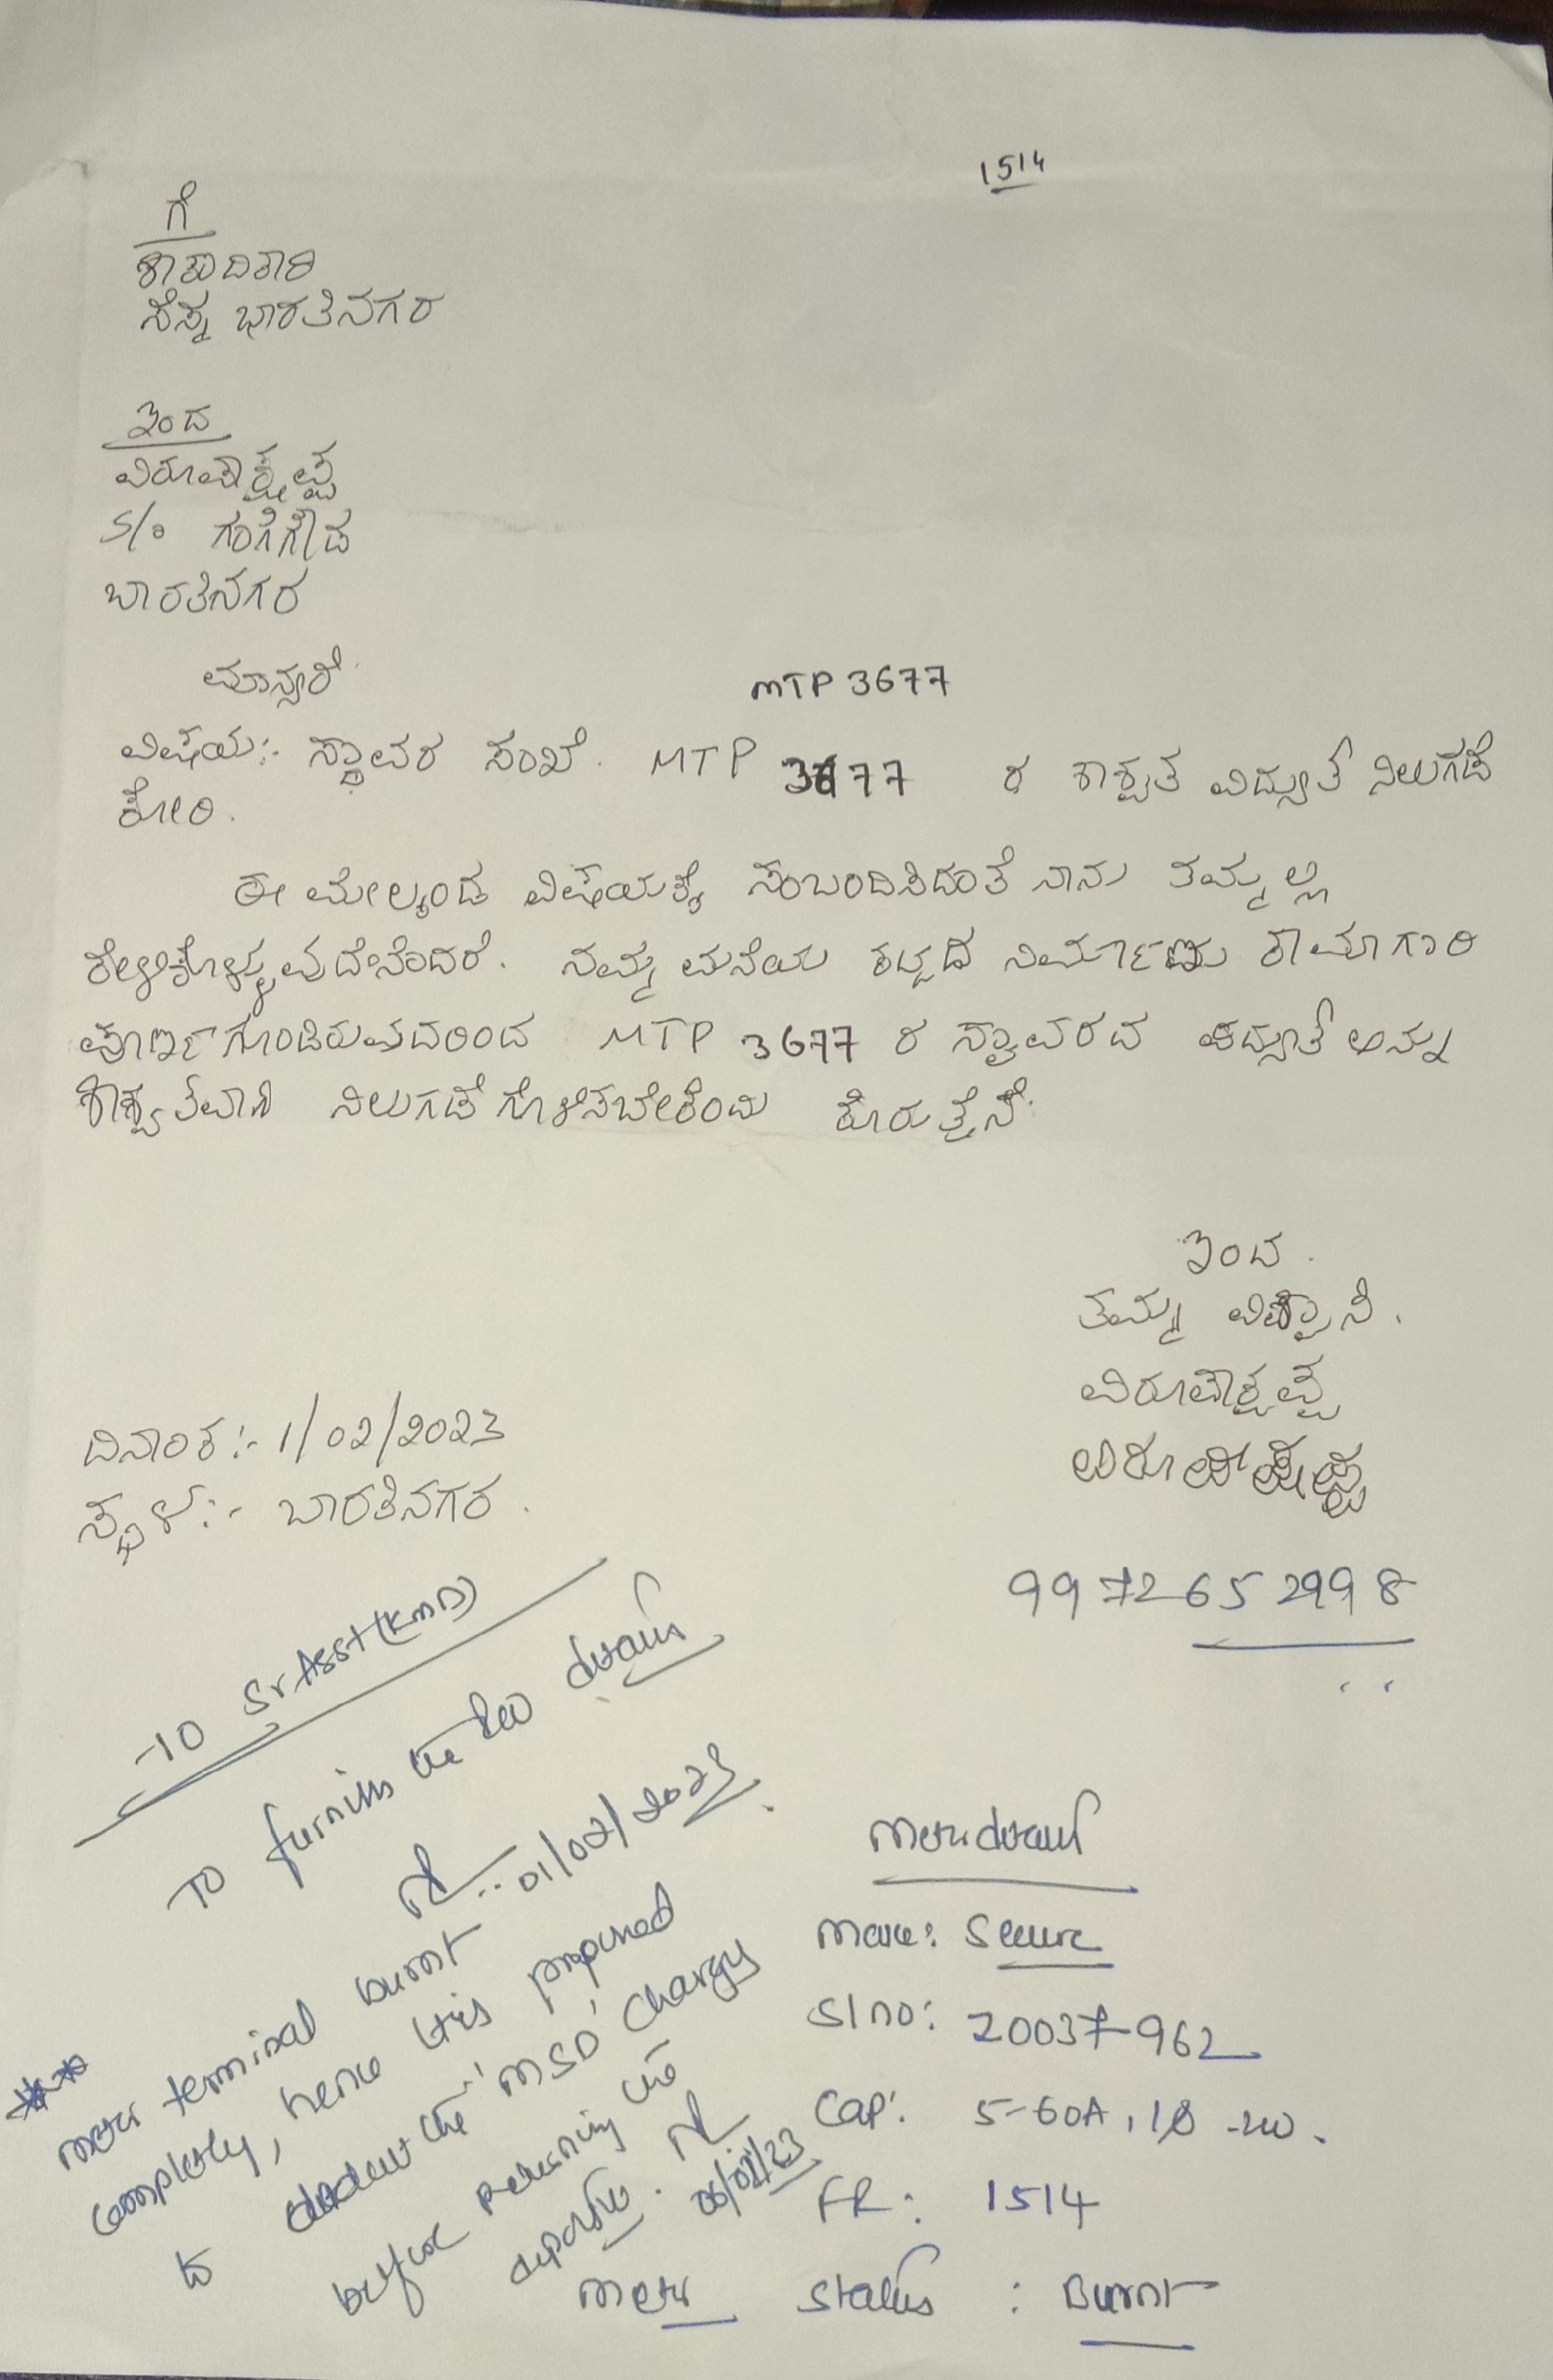 1514
ಗೆ
ಶಾಖಾದಿಕಾರಿ
ಸೆಸ್ಕ ಭಾರತಿನಗರ
ಇಂದ
ವಿರೂಪಾಕ್ಷಪ್ಪ
S/o ಗಂಗೆಗೌಡ
ಬಾರತಿನಗರ
ಮಾನ್ಯರೆ
MTP 3677
ವಿಷಯ:- ಸ್ಥಾವರ ಸಂಖೆ. MTP 3677 ರ ಶಾಶ್ವತ ವಿದ್ಯುತ್ ನಿಲುಗಡೆ
ಕೋರಿ.
ಈ ಮೇಲ್ಕಂಡ ವಿಷಯಕ್ಕೆ ಸಂಬಂದಿಸಿದಂತೆ ನಾನು ತಮ್ಮಲ್ಲಿ
ಕೇಳಿಕೊಳ್ಳುವುದೇನೆಂದರೆ. ನಮ್ಮ ಮನೆಯ ಕಟ್ಟಡ ನಿರ್ಮಾಣ ಕಾಮಾಗಾರಿ
ಪೂರ್ಣಗೊಂಡಿರುವುದರಿಂದ MTP 3677 ರ ಸ್ಥಾವರದ ವಿದ್ಯುತ್ ಅನ್ನು
ಶಾಶ್ವತವಾಗಿ ನಿಲುಗಡೆಗೊಳಿಸಬೇಕೆಂದು ಕೋರುತ್ತೇನೆ.
ಇಂದ.
ತಮ್ಮ ವಿಶ್ವಾಸಿ.
ವಿರೂಪಾಕ್ಷಪ್ಪ
ವಿರೂಪಾಕ್ಷಪ್ಪ
ದಿನಾಂಕ:- 1/02/2023
ಸ್ಥಳ:- ಬಾರತಿನಗರ.
9972652998
TO Sr Asst (KMD)
TO furnish the led details
01/02/2023
meter terminal burnt
completely, hence it is proposed
to deduct the 'MSD' charges
before returning the
deposite.
06/02/23
Meter details
Make: Secure
Sl no: 20037962
Cap: 5-60A, 1Ø -2w.
FR: 1514
Meter Status : Burnt